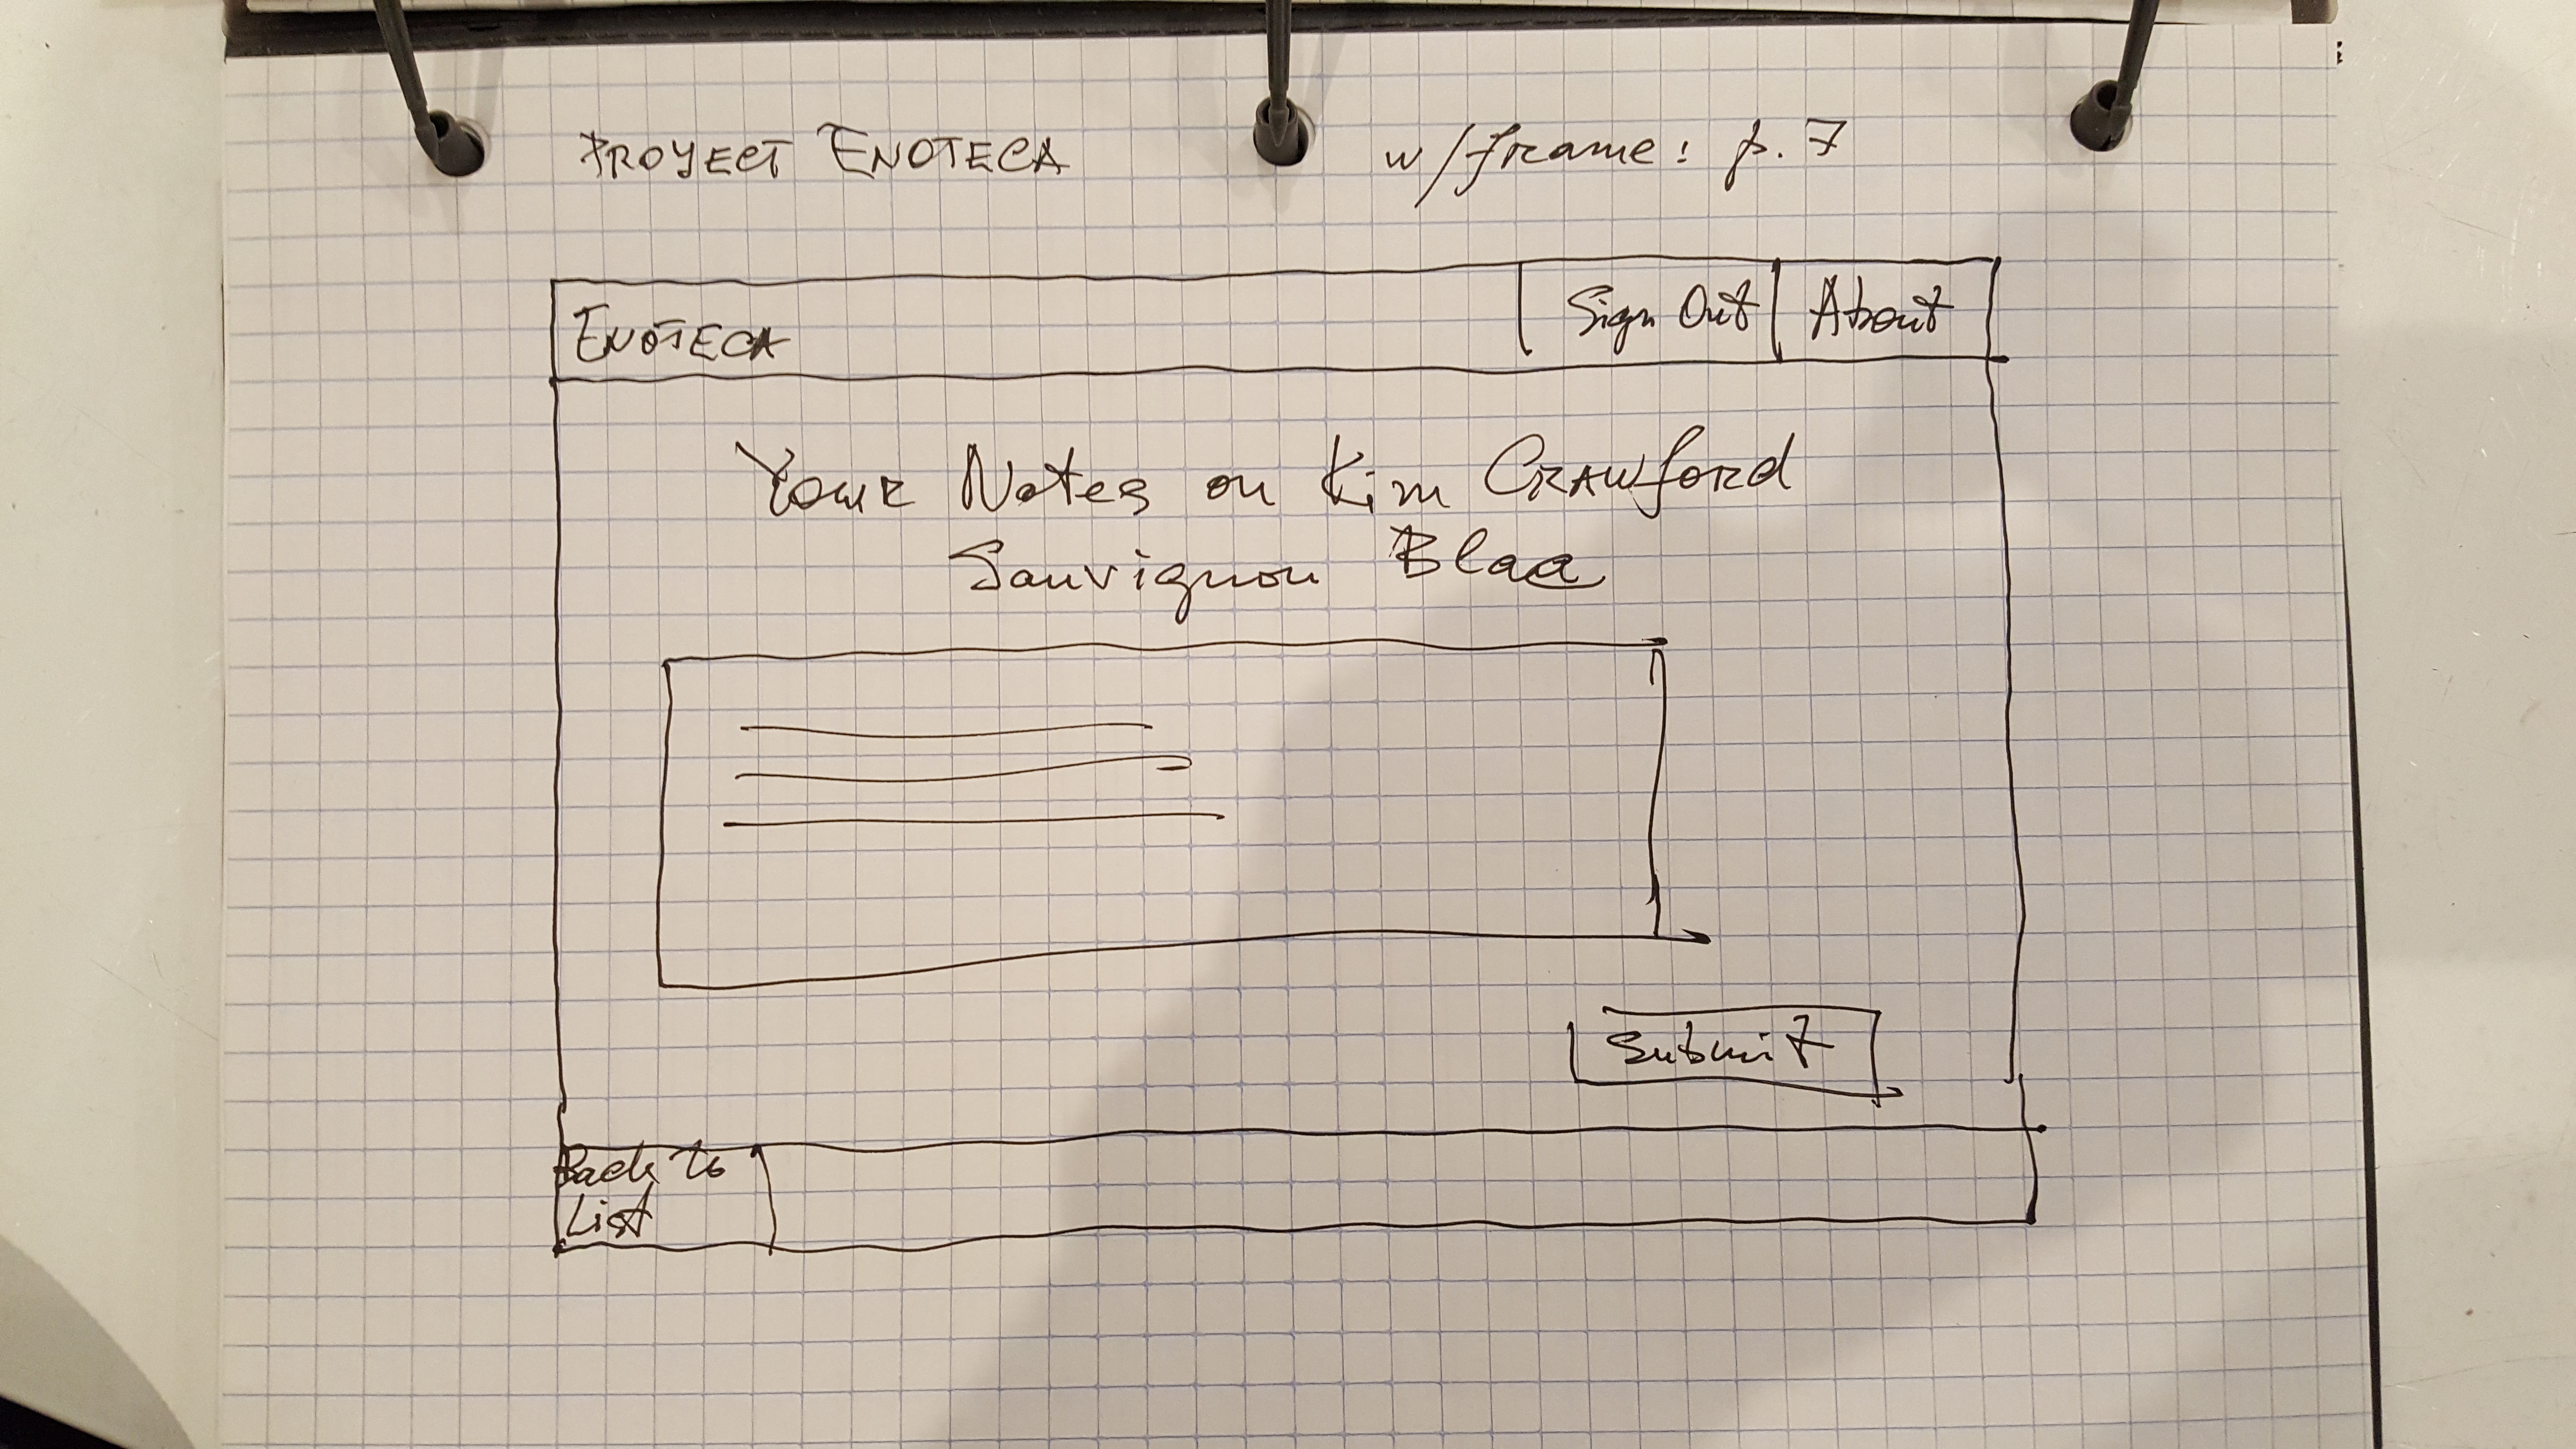 PROYECT ENOTECA w/frame: p. 7
ENOTECA Sign Out About
Your Notes on Kim CRAWford
Sauvignon Blaa
Submit
Back to
List